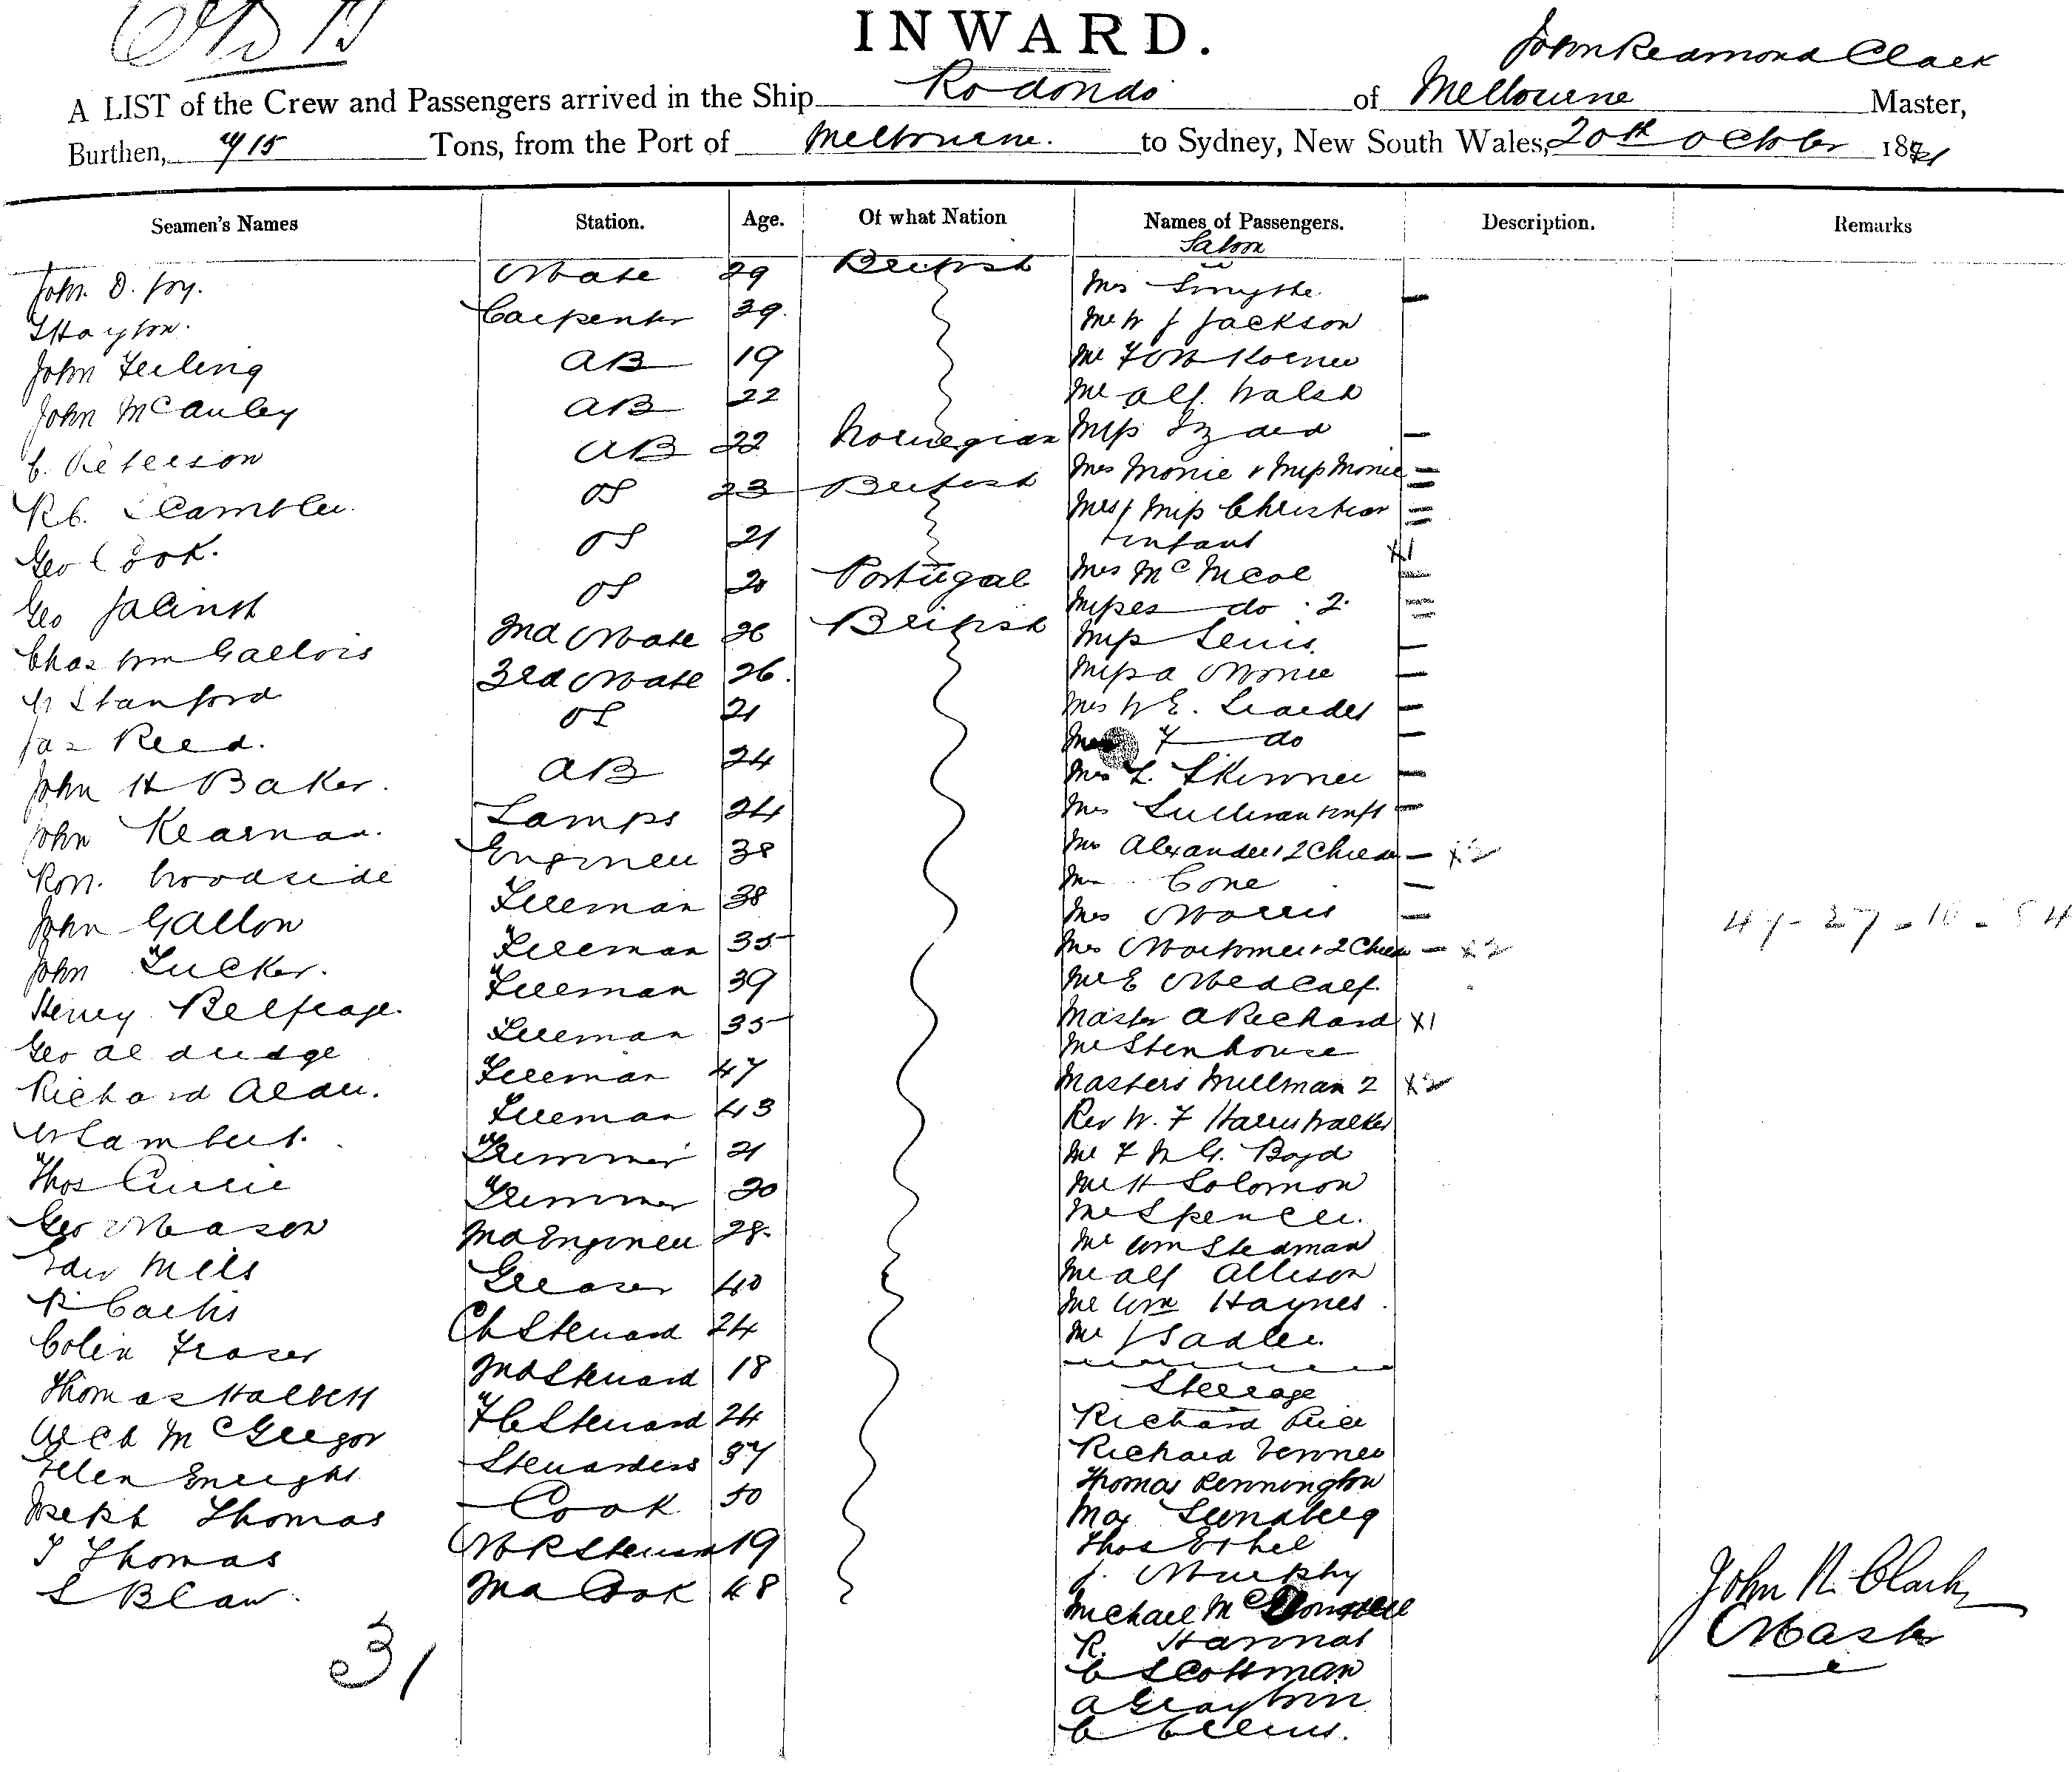 INWARD.
John Redmond Clark
A LIST of the Crew and Passengers arrived in the Ship Rodondo of Melbourne Master,
Burthen, 715 Tons, from the Port of Melbourne. to Sydney, New South Wales, 20th October 188
Seamen's Names Station. Age. Of what Nation Names of Passengers. Description. Remarks
Saloon
John D. Joy. Mate 29 British Mrs Smythe
Hayton. Carpenter 39. Mr W J Jackson
John Teiling AB 19 Mr
John McAuley AB 22 Mr Alf. Walsh
C. Peterson AB 22 Norwegian Miss
Rb. Scambler. OS 23 British Mrs Monie & Miss Monie
Geo Cook. OS 21 Mrs & Miss Christian
& infant x1
Geo Jacinth OS 20 Portugal Mrs McNicol
Misses do. 2.
Chas Wm Gallois 2nd Mate 26 British Miss Lewis
Stanford 3rd Mate 26. Miss A Monie
Jas Reed. OS 21 Mrs W E.
F do
John H Baker. AB 24 Mrs L. Skinner
John Kearnan. Lamps 24 Mrs Sullivan & inft
Rob. Woodside Engineer 38 Mrs Alexander & 2 Children x2
Cone
John Gallon Fireman 38 Mrs Morris
John Tucker. Fireman 35 Mrs Mortimer & 2 Children x2
Henry Belfrage. Fireman 39 Mr E Medcalf.
Geo Aldridge Fireman 35 Master A Richard x1
Mr Stenhouse
Richard Alder. Fireman 47 Masters Millman 2 x2
W Lambert. Fireman 43 Rev W. F Harris Walker
Thos Currie Trimmer 21 Mr F M G. Boyd
Geo Mason Trimmer 20 Mr H Solomon
Mr Spencer.
Edw Mills 2nd Engineer 28. Mr Wm Stedman
R Greaser 40 Mr Alf Allison
Colin Fraser Ch Steward 24 Mr Wm Haynes.
Mr J Sadler.
Thomas Halbett 2nd Steward 18 Steerage
Arch McGregor F C Steward 24 Richard Price
Ellen Enright Stewardess 37 Richard Venner
Joseph Thomas Cook 50 Thomas Pennington
Max Lundberg
T Thomas M R Steward 19 Thos Ethel
J. Murphy
S Blaw. 2nd Cook 48 Michael McDonnell
R. Hannah
C Scottman
A Graytwin
C
31
John R. Clark
Master